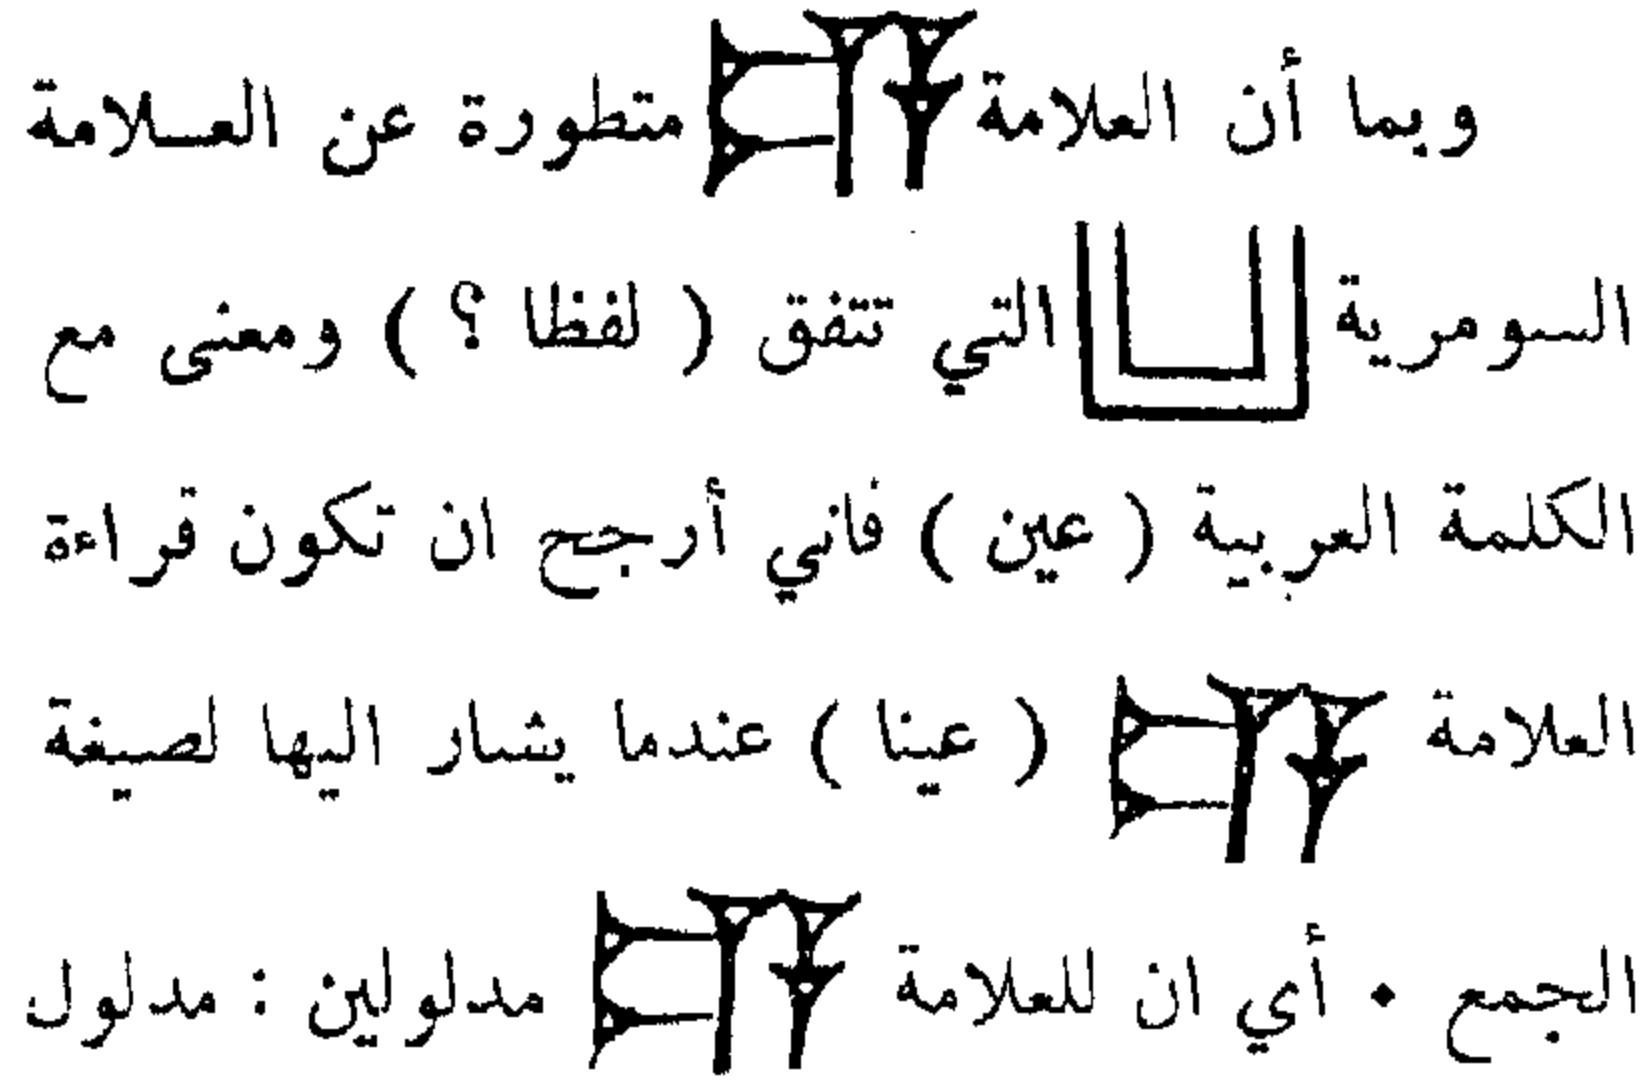 وبما أن العلامة 𒂍 متطورة عن العــلامة
السومرية التي تتفق ( لفظا ؟ ) ومعنى مع
الكلمة العربية ( عين ) فاني أرجح ان تكون قراءة
العلامة 𒂍 ( عينا ) عندما يشار اليها لصيغة
الجمع • أي ان للعلامة 𒂍 مدلولين : مدلول